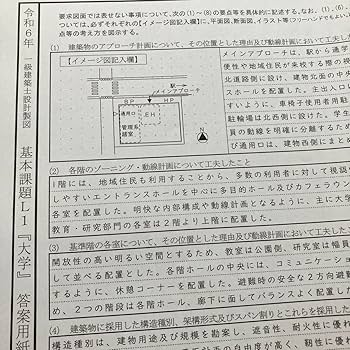 令和6年 一級建築士設計製図 基本課題L1『大学』 答案用紙
要求図面では表せない事項について、次の(1)～(8)の要点等を具体的に記述する。なお、(1)、(6)、
ついては、必ずそれぞれの【イメージ図記入欄】に平面図、断面図、イラスト等(フリーハンドでもよい
点等の考え方を図示する。
(1) 建築物のアプローチ計画について、その位置とした理由及び動線計画におい
【イメージ図記入欄】
駅
メインアプローチ
BP
HP
通用口
管理系諸室
EH
N
メインアプローチは、駅から通学
便性や地域住民が来校する際の視
北道路側に設け、建築物北面の中央
スホールを配置した。主出入口と
すいように、車椅子使用者用駐
駐輪場は北西側に設けた。学生
員の動線を明確に分離するため
び通用口は、建築物西側にまと
(2) 各階のゾーニング・動線計画について工夫したこと
1階には、地域住民も利用することから、多数の利用者に対して視認
しやすいエントランスホールを中心に多目的ホール及びカフェラウ
各室を配置した。明快な内部構成や動線計画となるように、主に大学
教育・研究部門の各室は2階より上階に配置した。
(3) 基準階の各室について、その位置とした理由及び動線計画において工夫
開放性の高い明るい空間とするため、教室は公園側、研究室は幅員
して並べる配置とした。各階ホールの中央には、コミュニケーショ
するように、休憩コーナーを配置した。避難時の安全な2方向避難
め、2つの階段は各階ホール、廊下に面してバランスよく配置した
(4) 建築物に採用した構造種別、架構形式及びスパン割りとこれらを採用
構造種別は、建物用途及び規模を勘案し、遮音性、耐火性に優れ